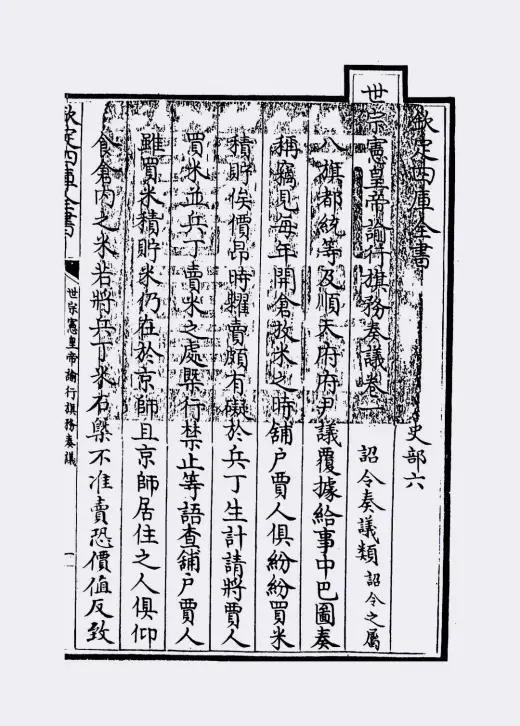 欽定四庫全書 史部六
世宗憲皇帝諭行旗務奏議卷一 詔令奏議類 詔令之屬
八旗都統等及順天府府尹議覆據給事中巴圖奏
稱竊見每年開倉放米之時舖户賈人俱紛紛買米
積貯俟價昂時糶賣頗有礙於兵丁生計請將賈人
買米並兵丁賣米之處槩行禁止等語查舖户賈人
雖買米積貯米仍在於京師且京師居住之人俱仰
食倉内之米若將兵丁米石槩不准賣恐價值反致
欽定四庫全書
世宗憲皇帝諭行旗務奏議
一